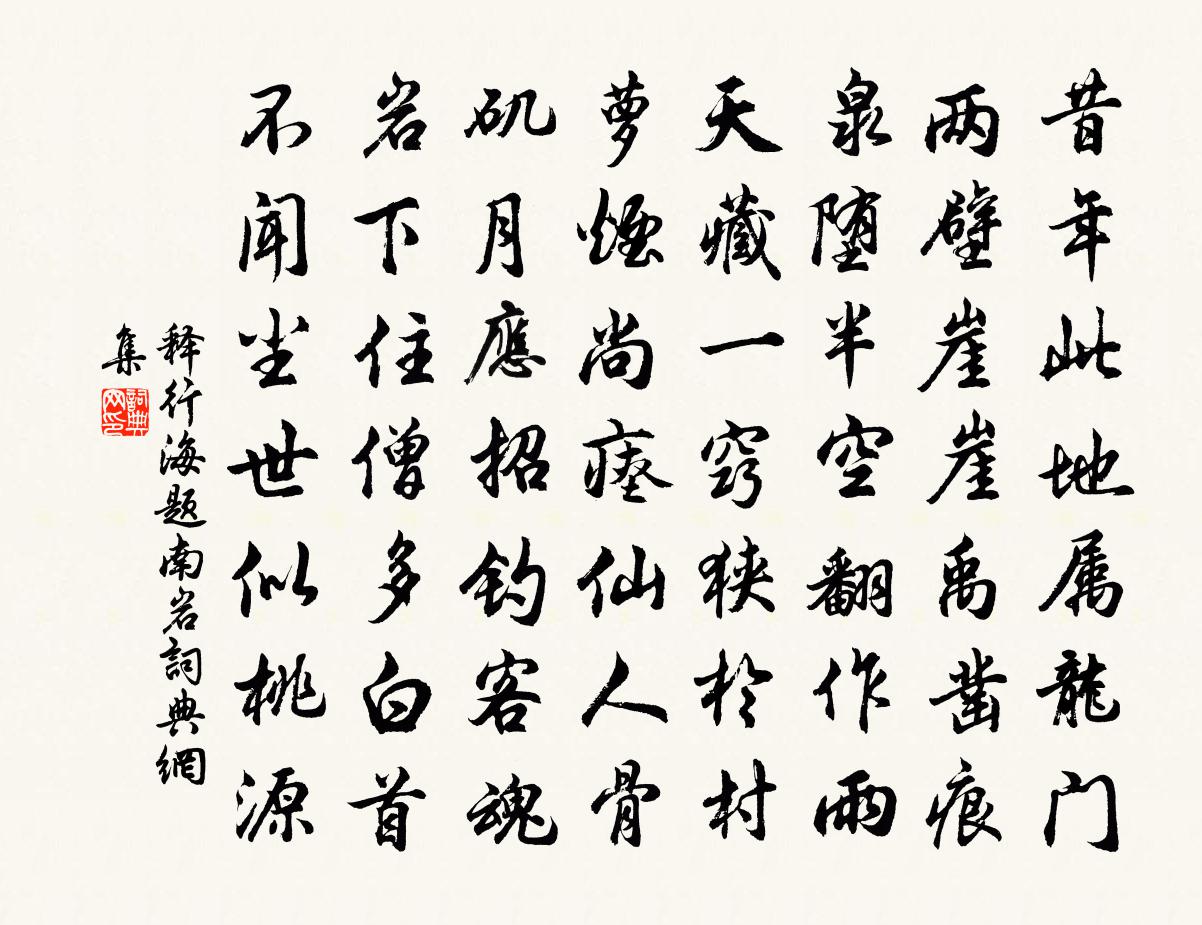 昔年此地属龍门
两壁崖崖禹凿痕
泉堕半空翻作雨
天藏一窍狭於村
萝烟尚瘗仙人骨
矶月應招钓客魂
岩下住僧多白首
不闻尘世似桃源
释行海题南岩詞典網
集
詞典
网印